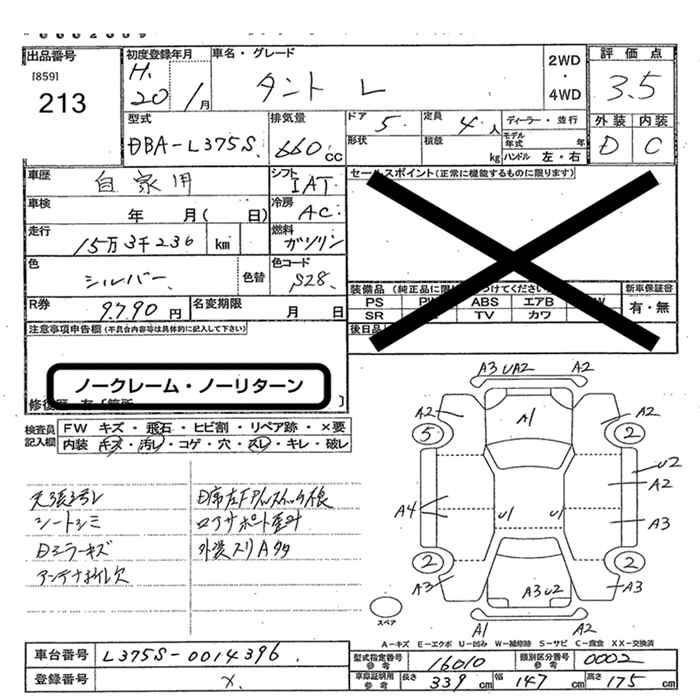 出品番号
[859]
213
初度登録年月
H.
20
1月
車名・グレード
タント L
2WD
・
4WD
評価点
3.5
外装 内装
D C
型式
DBA-L375S
排気量
660cc
ドア
5
定員
4人
ディーラー・並行
形状
積載
kg
モデル年式 年
ハンドル 左・右
車歴
自家用
シフト
IAT
車検
年 月( 日)
冷房
AC
走行
15万3千236 km
燃料
ガソリン
色
シルバー
色替
色コード
S28
R券
9790円
名変期限
月 日
セールスポイント(正常に機能するものに限ります)
装備品
PS
ABS エアB
SR
TV カワ
新車保証書
有・無
後日品
注意事項申告欄(不具合内容等は具体的に記入して下さい)
ノークレーム・ノーリターン
検査員
記入欄
FW キズ・飛石・ヒビ割・リペア跡・×要
内装 キズ・汚レ・コゲ・穴・スレ・キレ・破レ
シートシミ
Dミラーキズ
ロアサポート歪ミ
A3 UA2 A2
A2 A1 A2
5 2
U2
A2
A4 U1 U1
A3
2 2
A3 A3U2 A3
A1 A2
スペア
A-キズ E-エクボ U-凹み W-補修跡 S-サビ C-腐食 XX-交換済
車台番号
L375S-0014396
登録番号
×
型式指定番号
参考
16010
類別区分番号
参考
0002
車庫証明用
参考
長さ 339cm 幅 147cm 高さ 175cm